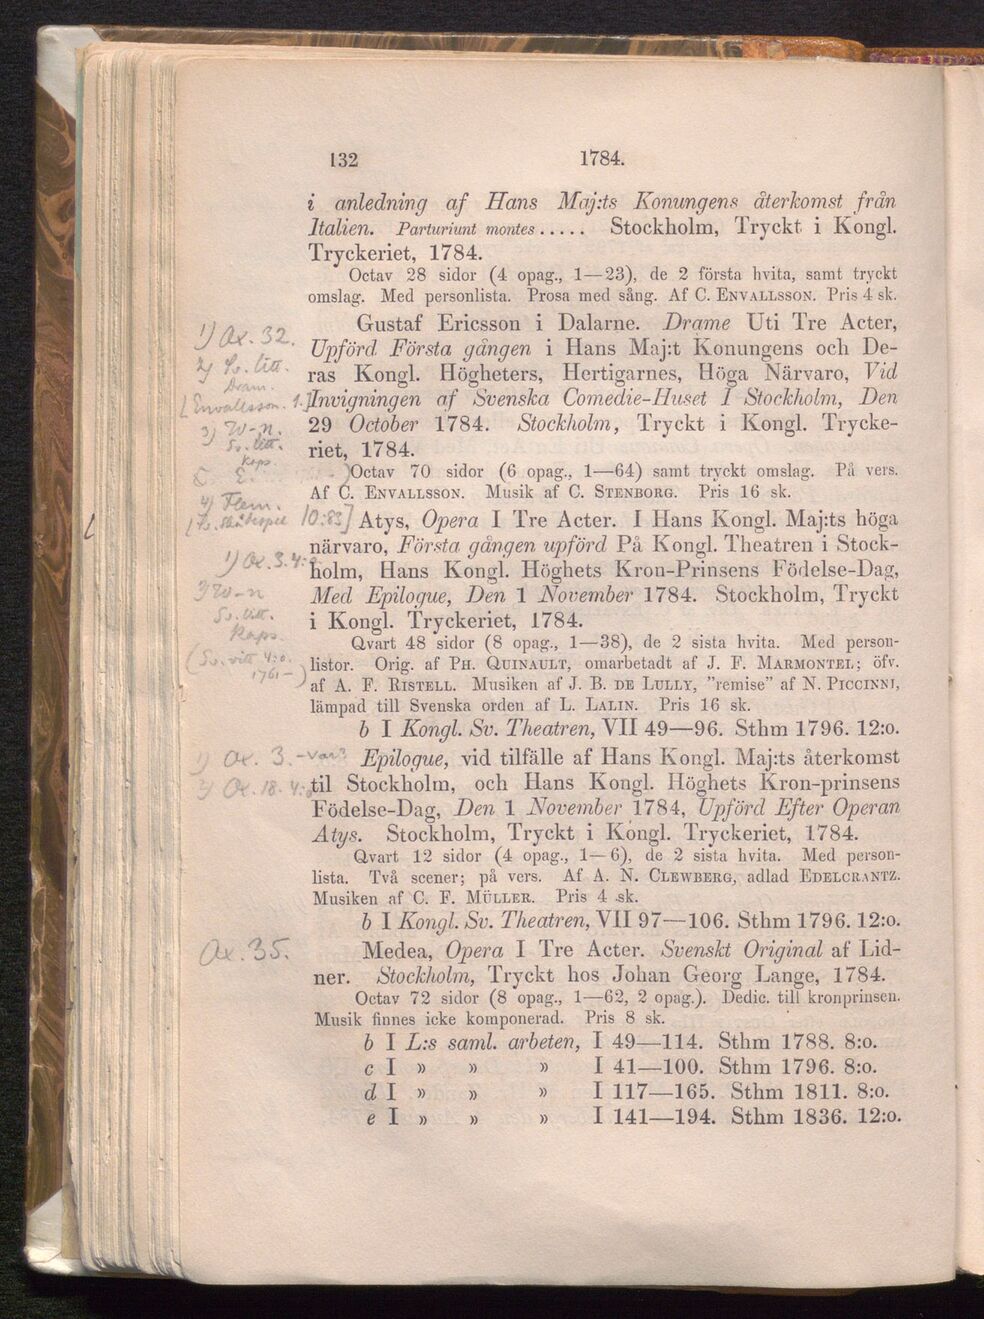 132 1784.
i anledning af Hans Maj:ts Konungens återkomst från
Italien. Parturiunt montes ..... Stockholm, Tryckt i Kongl.
Tryckeriet, 1784.
Octav 28 sidor (4 opag., 1—23), de 2 första hvita, samt tryckt
omslag. Med personlista. Prosa med sång. Af C. ENVALLSSON. Pris 4 sk.
1) Ox. 32.
Gustaf Ericsson i Dalarne. Drame Uti Tre Acter,
2) Sv. litt.
Upförd Första gången i Hans Maj:t Konungens och De-
Dram.
ras Kongl. Högheters, Hertigarnes, Höga Närvaro, Vid
[Envallsson. 1.]
Invigningen af Svenska Comedie-Huset I Stockholm, Den
3) W-n.
29 October 1784. Stockholm, Tryckt i Kongl. Trycke-
Sv. litt.
riet, 1784.
Kaps.
Octav 70 sidor (6 opag., 1—64) samt tryckt omslag. På vers.
E.
Af C. ENVALLSSON. Musik af C. STENBORG. Pris 16 sk.
4) Flem.
10:83]
Atys, Opera I Tre Acter. I Hans Kongl. Maj:ts höga
närvaro, Första gången upförd På Kongl. Theatren i Stock-
1) Ox. 3. 4:o
holm, Hans Kongl. Höghets Kron-Prinsens Födelse-Dag,
W-n
Med Epilogue, Den 1 November 1784. Stockholm, Tryckt
Sv. litt.
i Kongl. Tryckeriet, 1784.
Kaps.
Qvart 48 sidor (8 opag., 1—38), de 2 sista hvita. Med person-
(Sv. vitt 4:o.
listor. Orig. af PH. QUINAULT, omarbetadt af J. F. MARMONTEL; öfv.
1761-)
af A. F. RISTELL. Musiken af J. B. DE LULLY, "remise" af N. PICCINNI,
lämpad till Svenska orden af L. LALIN. Pris 16 sk.
b I Kongl. Sv. Theatren, VII 49—96. Sthm 1796. 12:o.
1) Ox. 3.
Epilogue, vid tilfälle af Hans Kongl. Maj:ts återkomst
2) Ox. 18. 4:o
til Stockholm, och Hans Kongl. Höghets Kron-prinsens
Födelse-Dag, Den 1 November 1784, Upförd Efter Operan
Atys. Stockholm, Tryckt i Kongl. Tryckeriet, 1784.
Qvart 12 sidor (4 opag., 1—6), de 2 sista hvita. Med person-
lista. Två scener; på vers. Af A. N. CLEWBERG, adlad EDELCRANTZ.
Musiken af C. F. MÜLLER. Pris 4 sk.
b I Kongl. Sv. Theatren, VII 97—106. Sthm 1796. 12:o.
Ox. 35.
Medea, Opera I Tre Acter. Svenskt Original af Lid-
ner. Stockholm, Tryckt hos Johan Georg Lange, 1784.
Octav 72 sidor (8 opag., 1—62, 2 opag.). Dedic. till kronprinsen.
Musik finnes icke komponerad. Pris 8 sk.
b I L:s saml. arbeten, I 49—114. Sthm 1788. 8:o.
c I » » » I 41—100. Sthm 1796. 8:o.
d I » » » I 117—165. Sthm 1811. 8:o.
e I » » » I 141—194. Sthm 1836. 12:o.